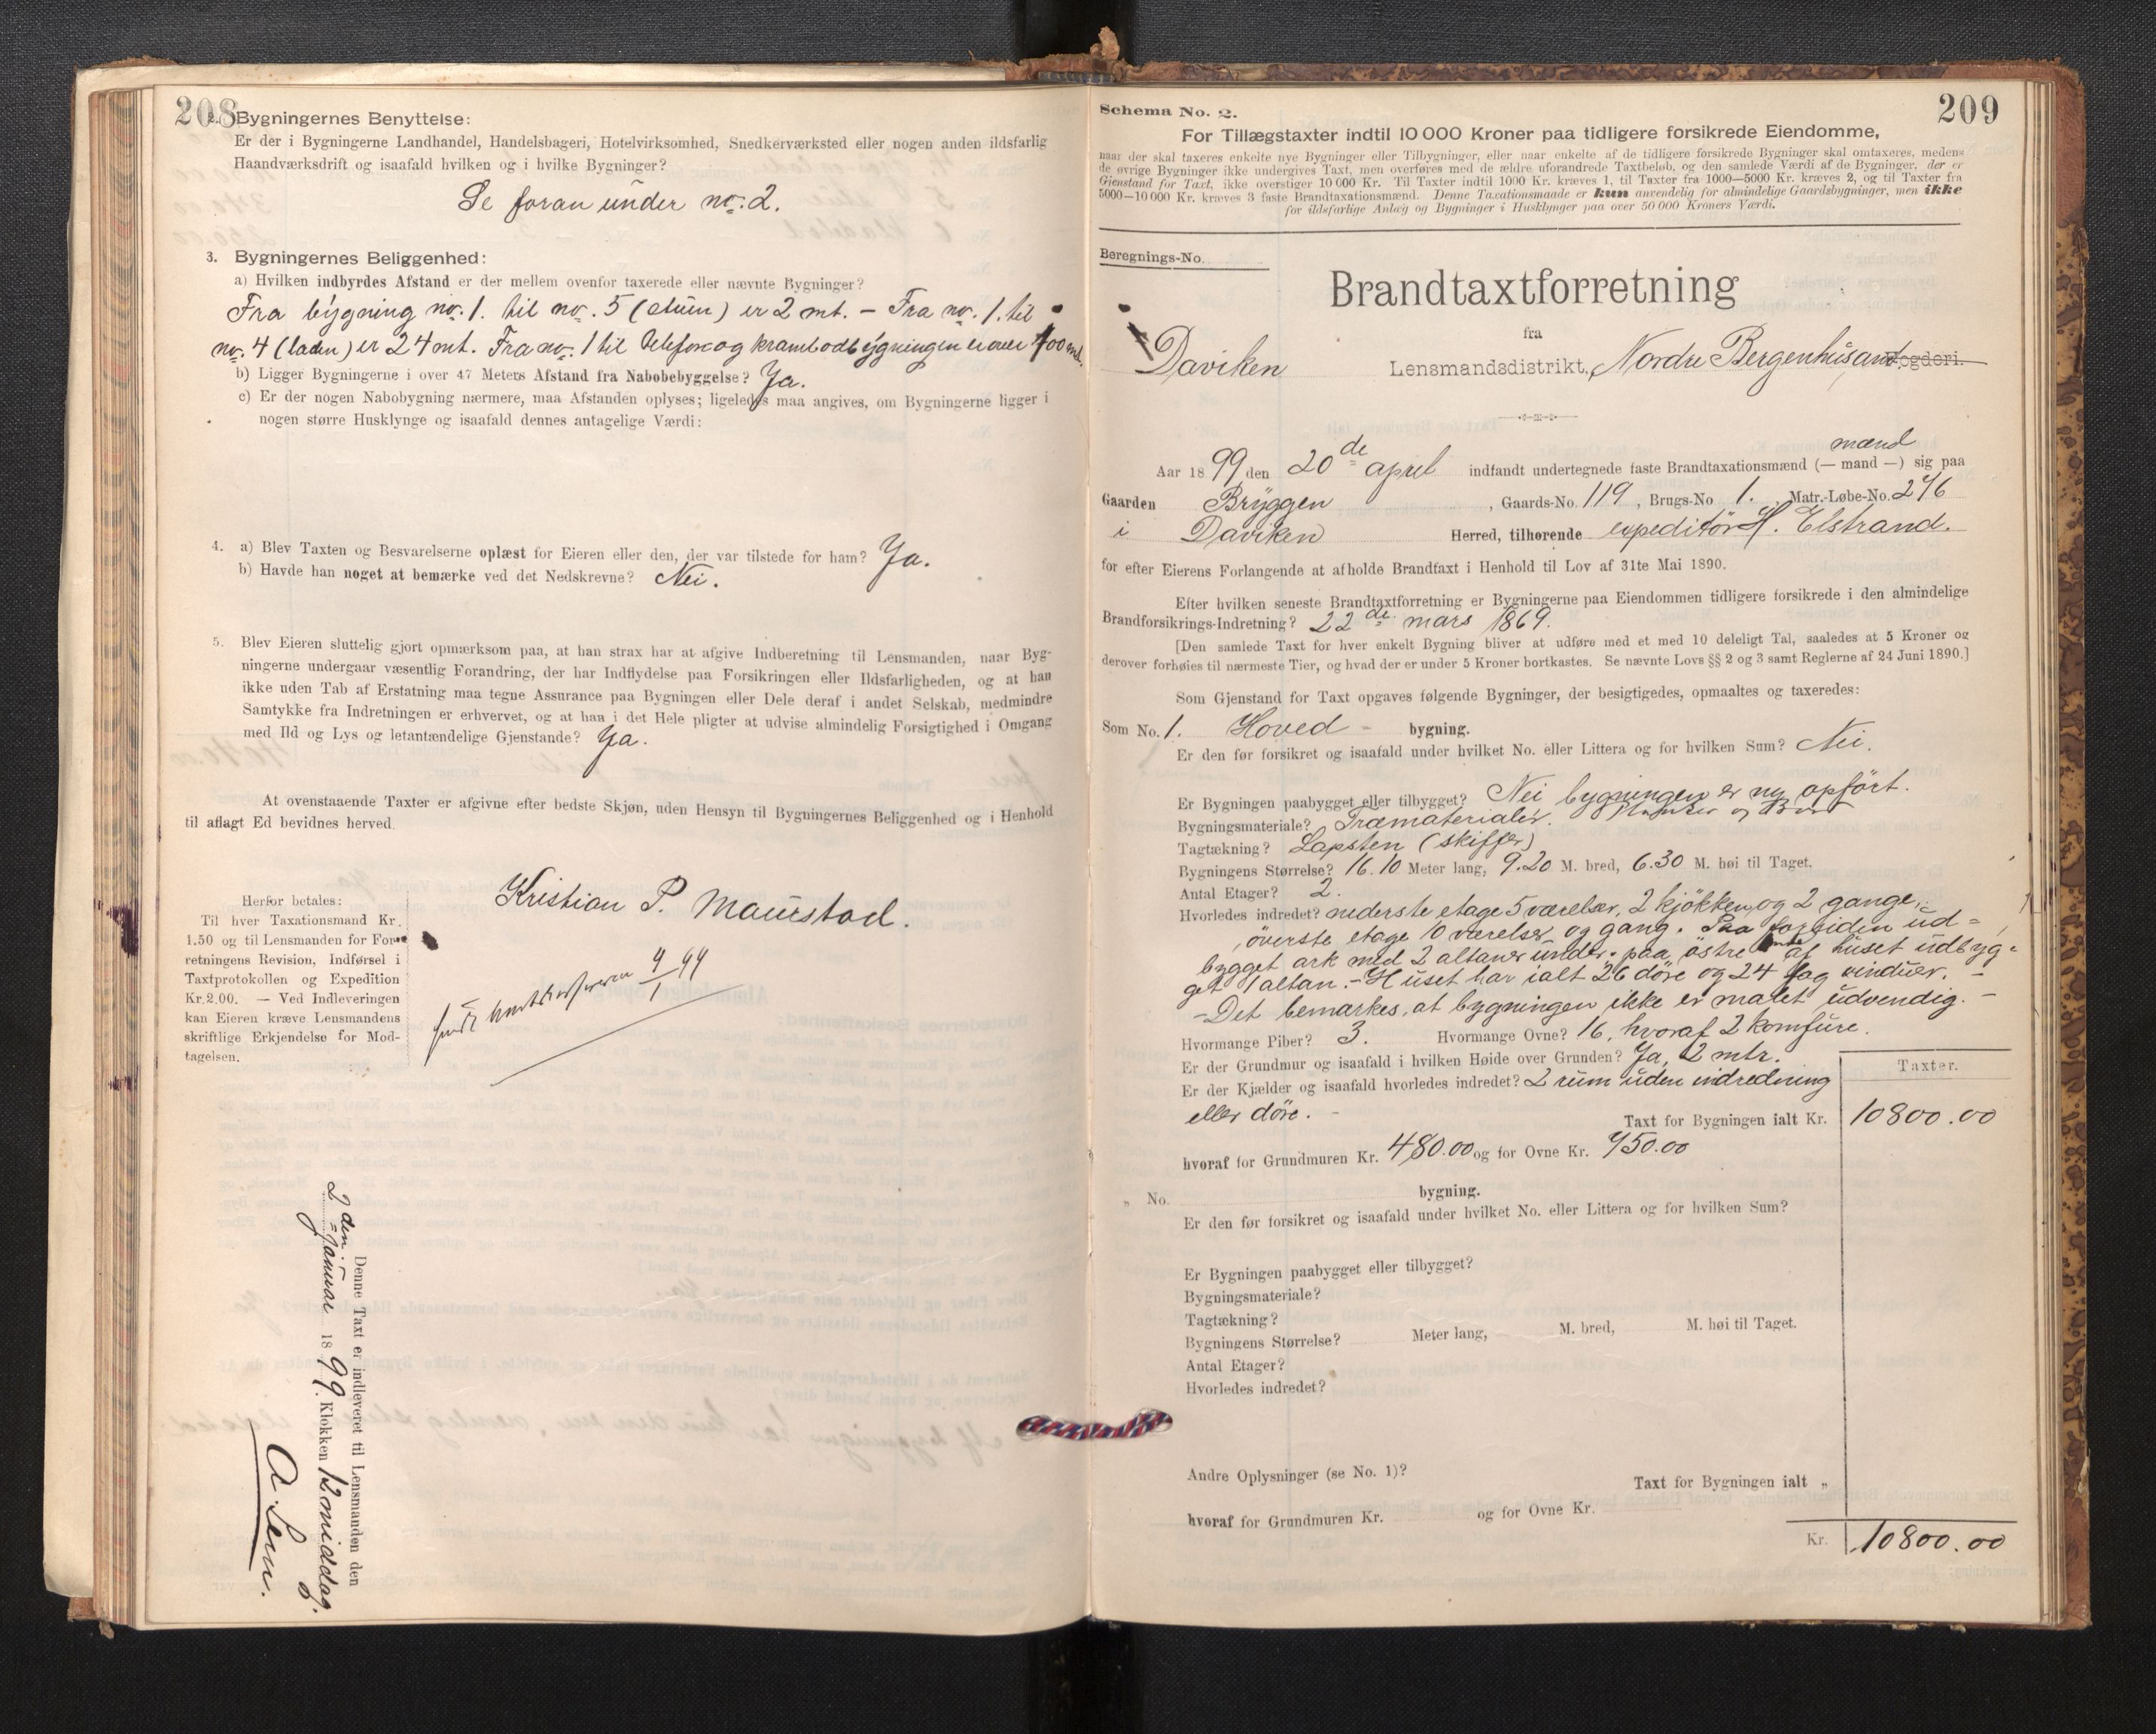 208
2. Bygningernes Benyttelse:
Er der i Bygningerne Landhandel, Handelsbageri, Hotelvirksomhed, Snedkerværksted eller nogen anden ildsfarlig
Haandværksdrift og isaafald hvilken og i hvilke Bygninger?
Se foran under no. 2.
3. Bygningernes Beliggenhed:
a) Hvilken indbyrdes Afstand er der mellem ovenfor taxerede eller nævnte Bygninger?
Fra bygning no. 1. til no. 5 (stuen) er 2 mt. – Fra no. 1. til
no. 4 (laden) er 24 mt. Fra no. 1 til telefon og krambodbygningen er over 100 mt.
b) Ligger Bygningerne i over 47 Meters Afstand fra Nabobebyggelse? Ja.
c) Er der nogen Nabobygning nærmere, maa Afstanden oplyses; ligeledes maa angives, om Bygningerne ligger i
nogen større Husklynge og isaafald dennes antagelige Værdi:
4. a) Blev Taxten og Besvarelserne oplæst for Eieren eller den, der var tilstede for ham? Ja.
b) Havde han noget at bemærke ved det Nedskrevne? Nei.
5. Blev Eieren sluttelig gjort opmærksom paa, at han strax har at afgive Indberetning til Lensmanden, naar Byg-
ningerne undergaar væsentlig Forandring, der har Indflydelse paa Forsikringen eller Ildsfarligheden, og at han
ikke uden Tab af Erstatning maa tegne Assurance paa Bygningen eller Dele deraf i andet Selskab, medmindre
Samtykke fra Indretningen er erhvervet, og at han i det Hele pligter at udvise almindelig Forsigtighed i Omgang
med Ild og Lys og letantændelige Gjenstande? Ja.
At ovenstaaende Taxter er afgivne efter bedste Skjøn, uden Hensyn til Bygningernes Beliggenhed og i Henhold
til aflagt Ed bevidnes herved.
Kristian P. Maurstad.
Herfor betales:
Til hver Taxationsmand Kr.
1.50 og til Lensmanden for For-
retningens Revision, Indførsel i
Taxtprotokollen og Expedition
Kr. 2.00. — Ved Indleveringen
kan Eieren kræve Lensmandens
skriftlige Erkjendelse for Mod-
tagelsen.
Denne Taxt er indleveret til Lensmanden den
2den Januar 1899. Klokken 12 middag.
A. Sem.
209
Schema No. 2.
For Tillægstaxter indtil 10 000 Kroner paa tidligere forsikrede Eiendomme,
naar der skal taxeres enkelte nye Bygninger eller Tilbygninger, eller naar enkelte af de tidligere forsikrede Bygninger skal omtaxeres, medens
de øvrige Bygninger ikke undergives Taxt, men overføres med de ældre uforandrede Taxtbeløb, og den samlede Værdi af de Bygninger, der er
Gjenstand for Taxt, ikke overstiger 10 000 Kr. Til Taxter indtil 1000 Kr. kræves 1, til Taxter fra 1000—5000 Kr. kræves 2, og til Taxter fra
5000—10 000 Kr. kræves 3 faste Brandtaxationsmænd. Denne Taxationsmaade er kun anvendelig for almindelige Gaardsbygninger, men ikke
for ildsfarlige Anlæg og Bygninger i Husklynger paa over 50 000 Kroners Værdi.
Beregnings-No.
Brandtaxtforretning
fra
Daviken Lensmandsdistrikt, Nordre Bergenhus amt Fogderi.
mænd
Aar 1899, den 20de april indfandt undertegnede faste Brandtaxationsmænd (— mand —) sig paa
Gaarden Bryggen, Gaards-No. 119, Brugs-No 1., Matr.-Løbe-No. 276
i Daviken Herred, tilhørende expeditör H. Elstrand.
for efter Eierens Forlangende at afholde Brandtaxt i Henhold til Lov af 31te Mai 1890.
Efter hvilken seneste Brandtaxtforretning er Bygningerne paa Eiendommen tidligere forsikrede i den almindelige
Brandforsikrings-Indretning? 22de mars 1869.
[Den samlede Taxt for hver enkelt Bygning bliver at udføre med et med 10 deleligt Tal, saaledes at 5 Kroner og
derover forhøies til nærmeste Tier, og hvad der er under 5 Kroner bortkastes. Se nævnte Lovs §§ 2 og 3 samt Reglerne af 24 Juni 1890.]
Som Gjenstand for Taxt opgaves følgende Bygninger, der besigtigedes, opmaaltes og taxeredes:
Som No. 1. Hoved- bygning.
Er den før forsikret og isaafald under hvilket No. eller Littera og for hvilken Sum? Nei.
Er Bygningen paabygget eller tilbygget? Nei bygningen er ny opført.
Bygningsmateriale? Træmaterialer. Planker og Bord
Tagtækning? Lapsten (skiffer)
Bygningens Størrelse? 16.10 Meter lang, 9.20 M. bred, 6.30 M. høi til Taget.
Antal Etager? 2.
Hvorledes indredet? nederste etage 5 værelser, 2 kjøkken og 2 gange,
överste etage 10 værelser og gang. Paa forsiden ud-
bygget ark med 2 altaner under. paa östre ende af huset udbyg-
get 1 altan. – Huset har ialt 26 döre og 24 fag vinduer. –
– Det bemærkes, at bygningen ikke er malet udvendig. –
Hvormange Piber? 3. Hvormange Ovne? 16, hvoraf 2 komfure.
Er der Grundmur og isaafald i hvilken Høide over Grunden? Ja, 2 mtr.
Er der Kjælder og isaafald hvorledes indredet? 2 rum uden indredning
eller döre. –
Taxter.
Taxt for Bygningen ialt Kr. 10800.00
hvoraf for Grundmuren Kr. 480.00 og for Ovne Kr. 750.00
„ No. bygning.
Er den før forsikret og isaafald under hvilket No. eller Littera og for hvilken Sum?
Er Bygningen paabygget eller tilbygget?
Bygningsmateriale?
Tagtækning?
Bygningens Størrelse? Meter lang, M. bred, M. høi til Taget.
Antal Etager?
Hvorledes indredet?
Andre Oplysninger (se No. 1)?
Taxt for Bygningen ialt „
hvoraf for Grundmuren Kr. og for Ovne Kr.
Kr. 10800.00